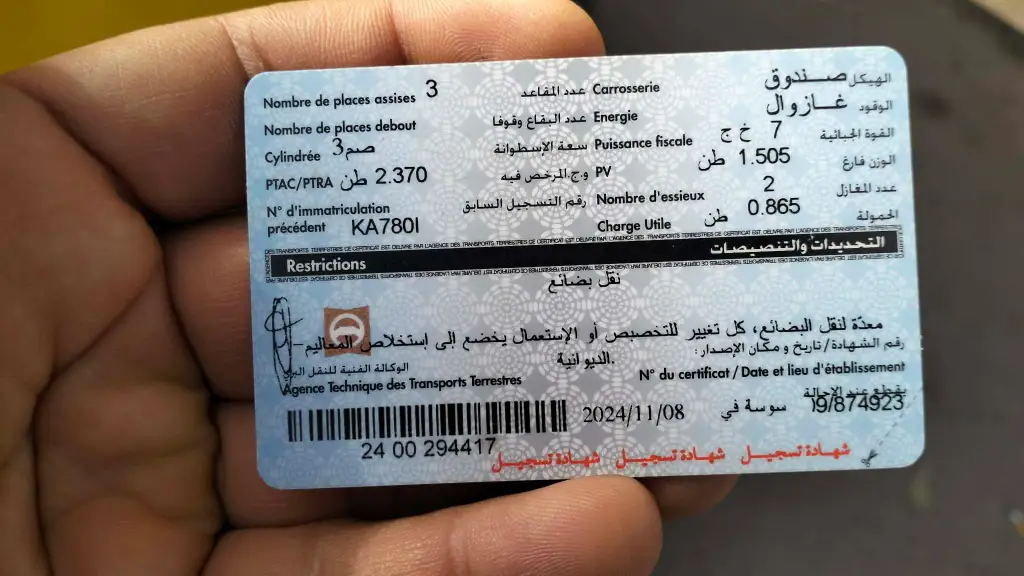 Nombre de places assises 3 عدد المقاعد Carrosserie صندوق الهيكل
Nombre de places debout عدد البقاع وقوفا Energie غازوال الوقود
Cylindrée 3صم سعة الإسطوانة Puissance fiscale 7 خ ج القوة الجبائية
PTAC/PTRA 2.370 طن و.ج.المرخص فيه PV 1.505 طن الوزن فارغ
N° d'immatriculation précédent KA780I رقم التسجيل السابق Nombre d'essieux 2 عدد المغازل
Charge Utile 0.865 طن الحمولة
CE CERTIFICAT EST DELIVRE PAR L'AGENCE DES TRANSPORTS TERRESTRES
Restrictions التحديدات والتنصيصات
نقل بضائع
معدّة لنقل البضائع، كل تغيير للتخصيص أو الإستعمال يخضع إلى إستخلاص المعاليم
الديوانية.
رقم الشهادة/تاريخ و مكان الإصدار:
الوكالة الفنية للنقل البري
N° du certificat / Date et lieu d'établissement
Agence Technique des Transports Terrestres
يقطع عند الإحالة
2024/11/08 سوسة في 19/874923
24 00 294417
شهادة تسجيل شهادة تسجيل شهادة تسجيل